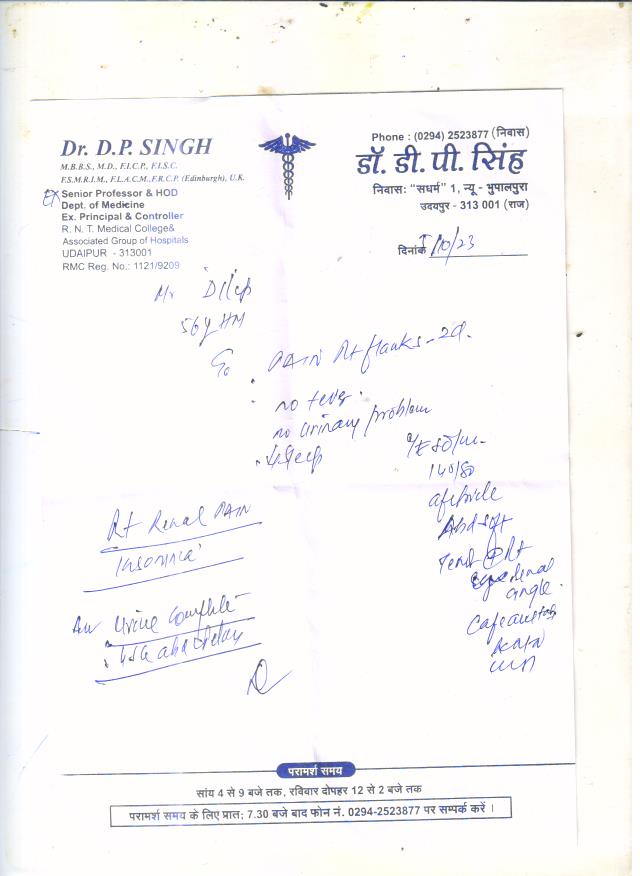 Dr. D.P. SINGH
M.B.B.S., M.D., F.I.C.P., F.I.S.C.
F.S.M.R.I.M., F.L.A.C.M., F.R.C.P. (Edinburgh), U.K.
Ex Senior Professor & HOD
Dept. of Medicine
Ex. Principal & Controller
R. N. T. Medical College&
Associated Group of Hospitals
UDAIPUR - 313001
RMC Reg. No.: 1121/9209
Phone : (0294) 2523877 (निवास)
डॉ. डी. पी. सिंह
निवासः "सधर्म" 1, न्यू - भुपालपुरा
उदयपुर - 313 001 (राज)
दिनांक /10/23
Mr Dilip
56y HM
C/o PAIN Rt flanks - 2d.
no fever.
no urinary problem
↓Sleep
O/E 80/m.
140/80
afebrile
Abd soft
Tend @ Rt
renal
angle.
Rt Renal PAIN
Insomnia
Urine Complete
USG abd Pelvis
परामर्श समय
सांय 4 से 9 बजे तक, रविवार दोपहर 12 से 2 बजे तक
परामर्श समय के लिए प्रातः 7.30 बजे बाद फोन नं. 0294-2523877 पर सम्पर्क करें ।